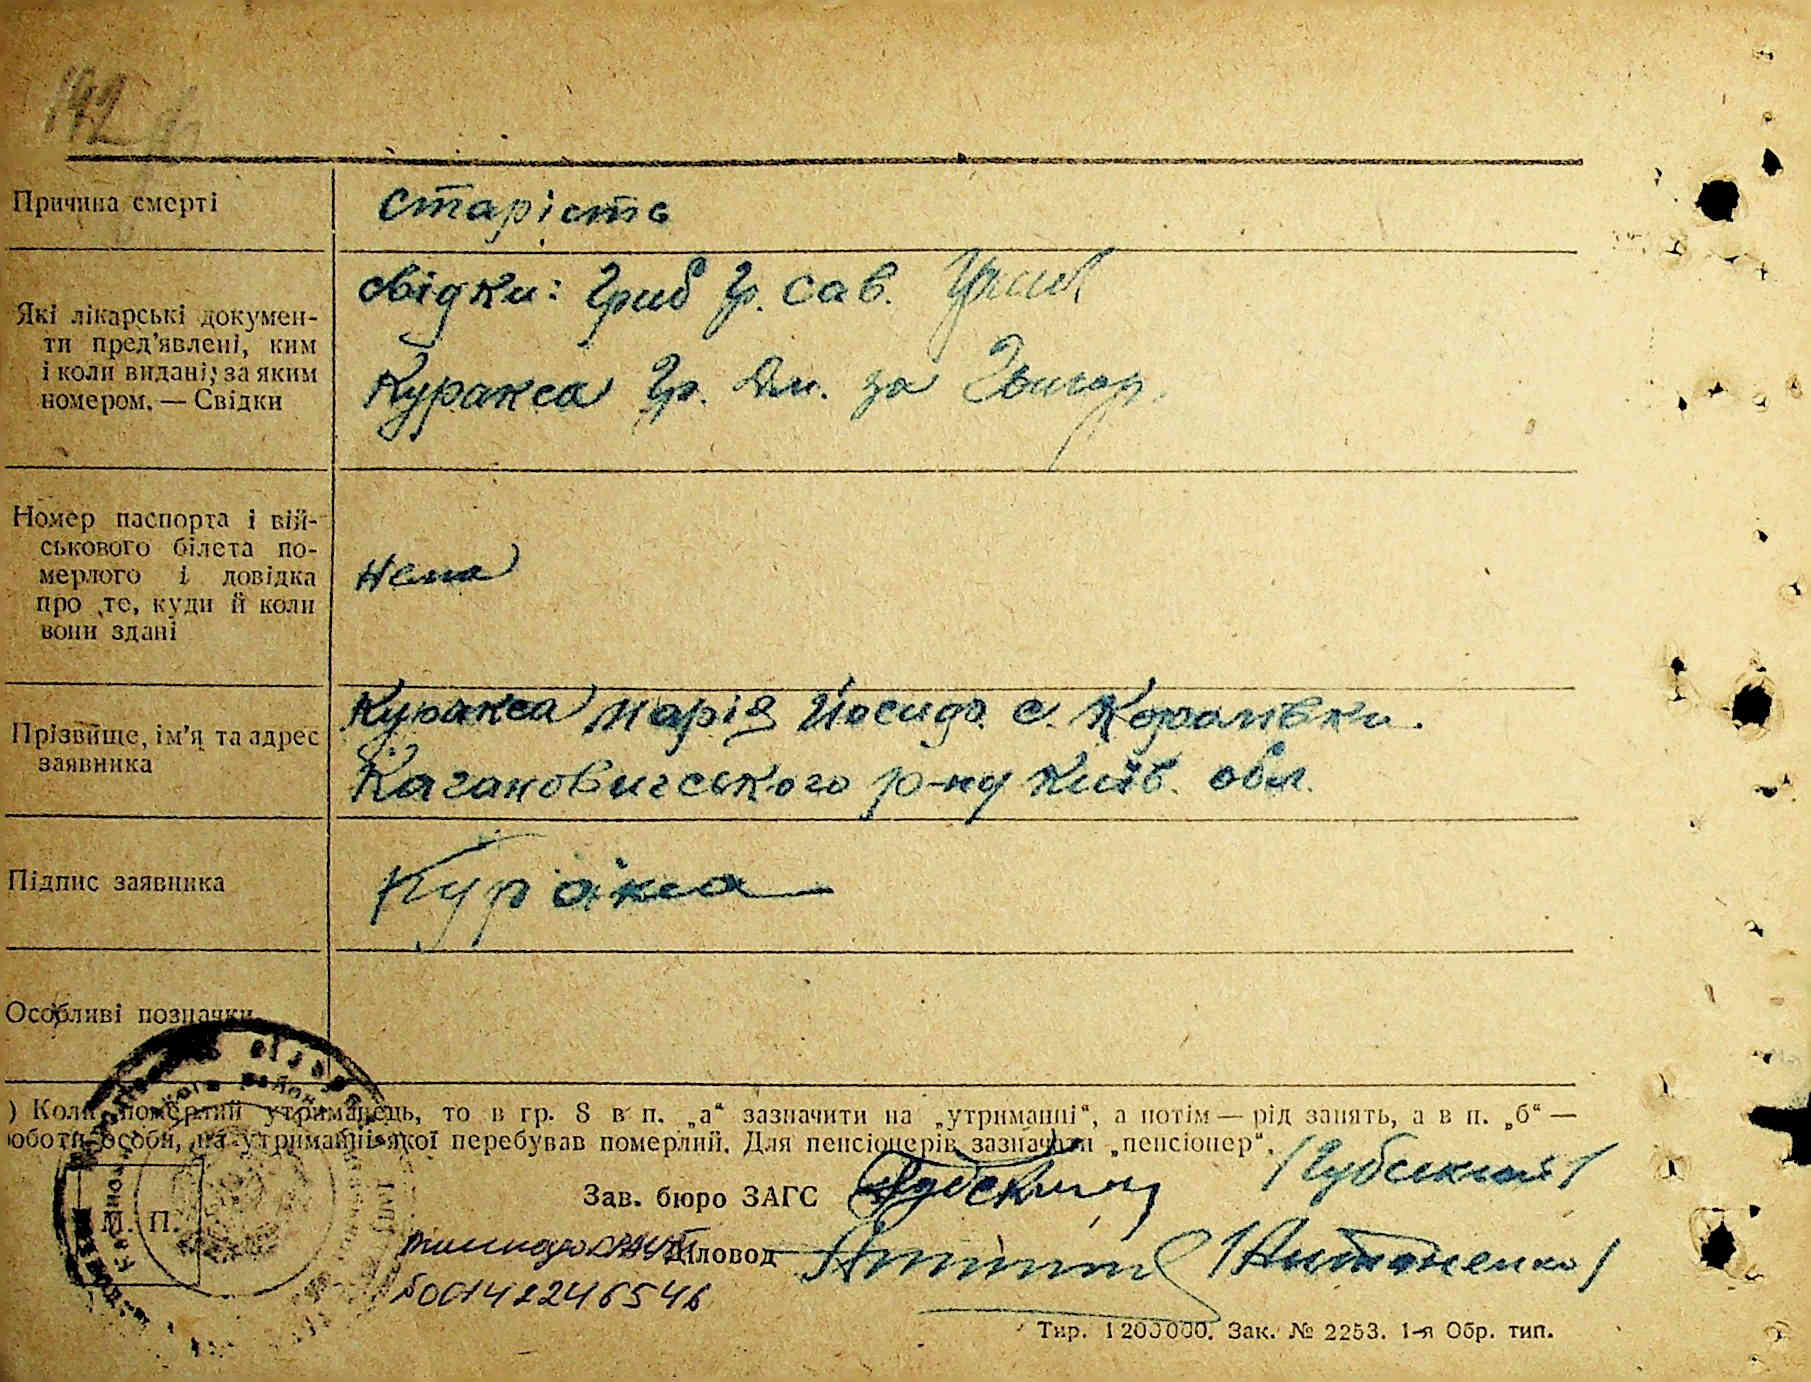 142
Причина смерті
старість
Які лікарські докумен-
ти пред'явлені, ким
і коли видані, за яким
номером. — Свідки
свідки: Гриб Гр. Сав.
Куракса Гр. Дм. за
Номер паспорта і вій-
ськового білета по-
мерлого і довідка
про те, куди й коли
вони здані
нема
Прізвище, ім'я та адрес
заявника
Куракса Марія Йосипо. с.
Кагановичського р-ну Київ. обл.
Підпис заявника
Куракса
Особливі позначки
) Коли померлий утриманець, то в гр. 8 в п. „а“ зазначити на „утриманні“, а потім — рід занять, а в п. „б“ —
роботи особи, на утриманні якої перебував померлий. Для пенсіонерів зазначати „пенсіонер“.
Зав. бюро ЗАГС
М. П.
Діловод /Антоненко/
00142246546
Тир. 1200000. Зак. № 2253. 1-я Обр. тип.